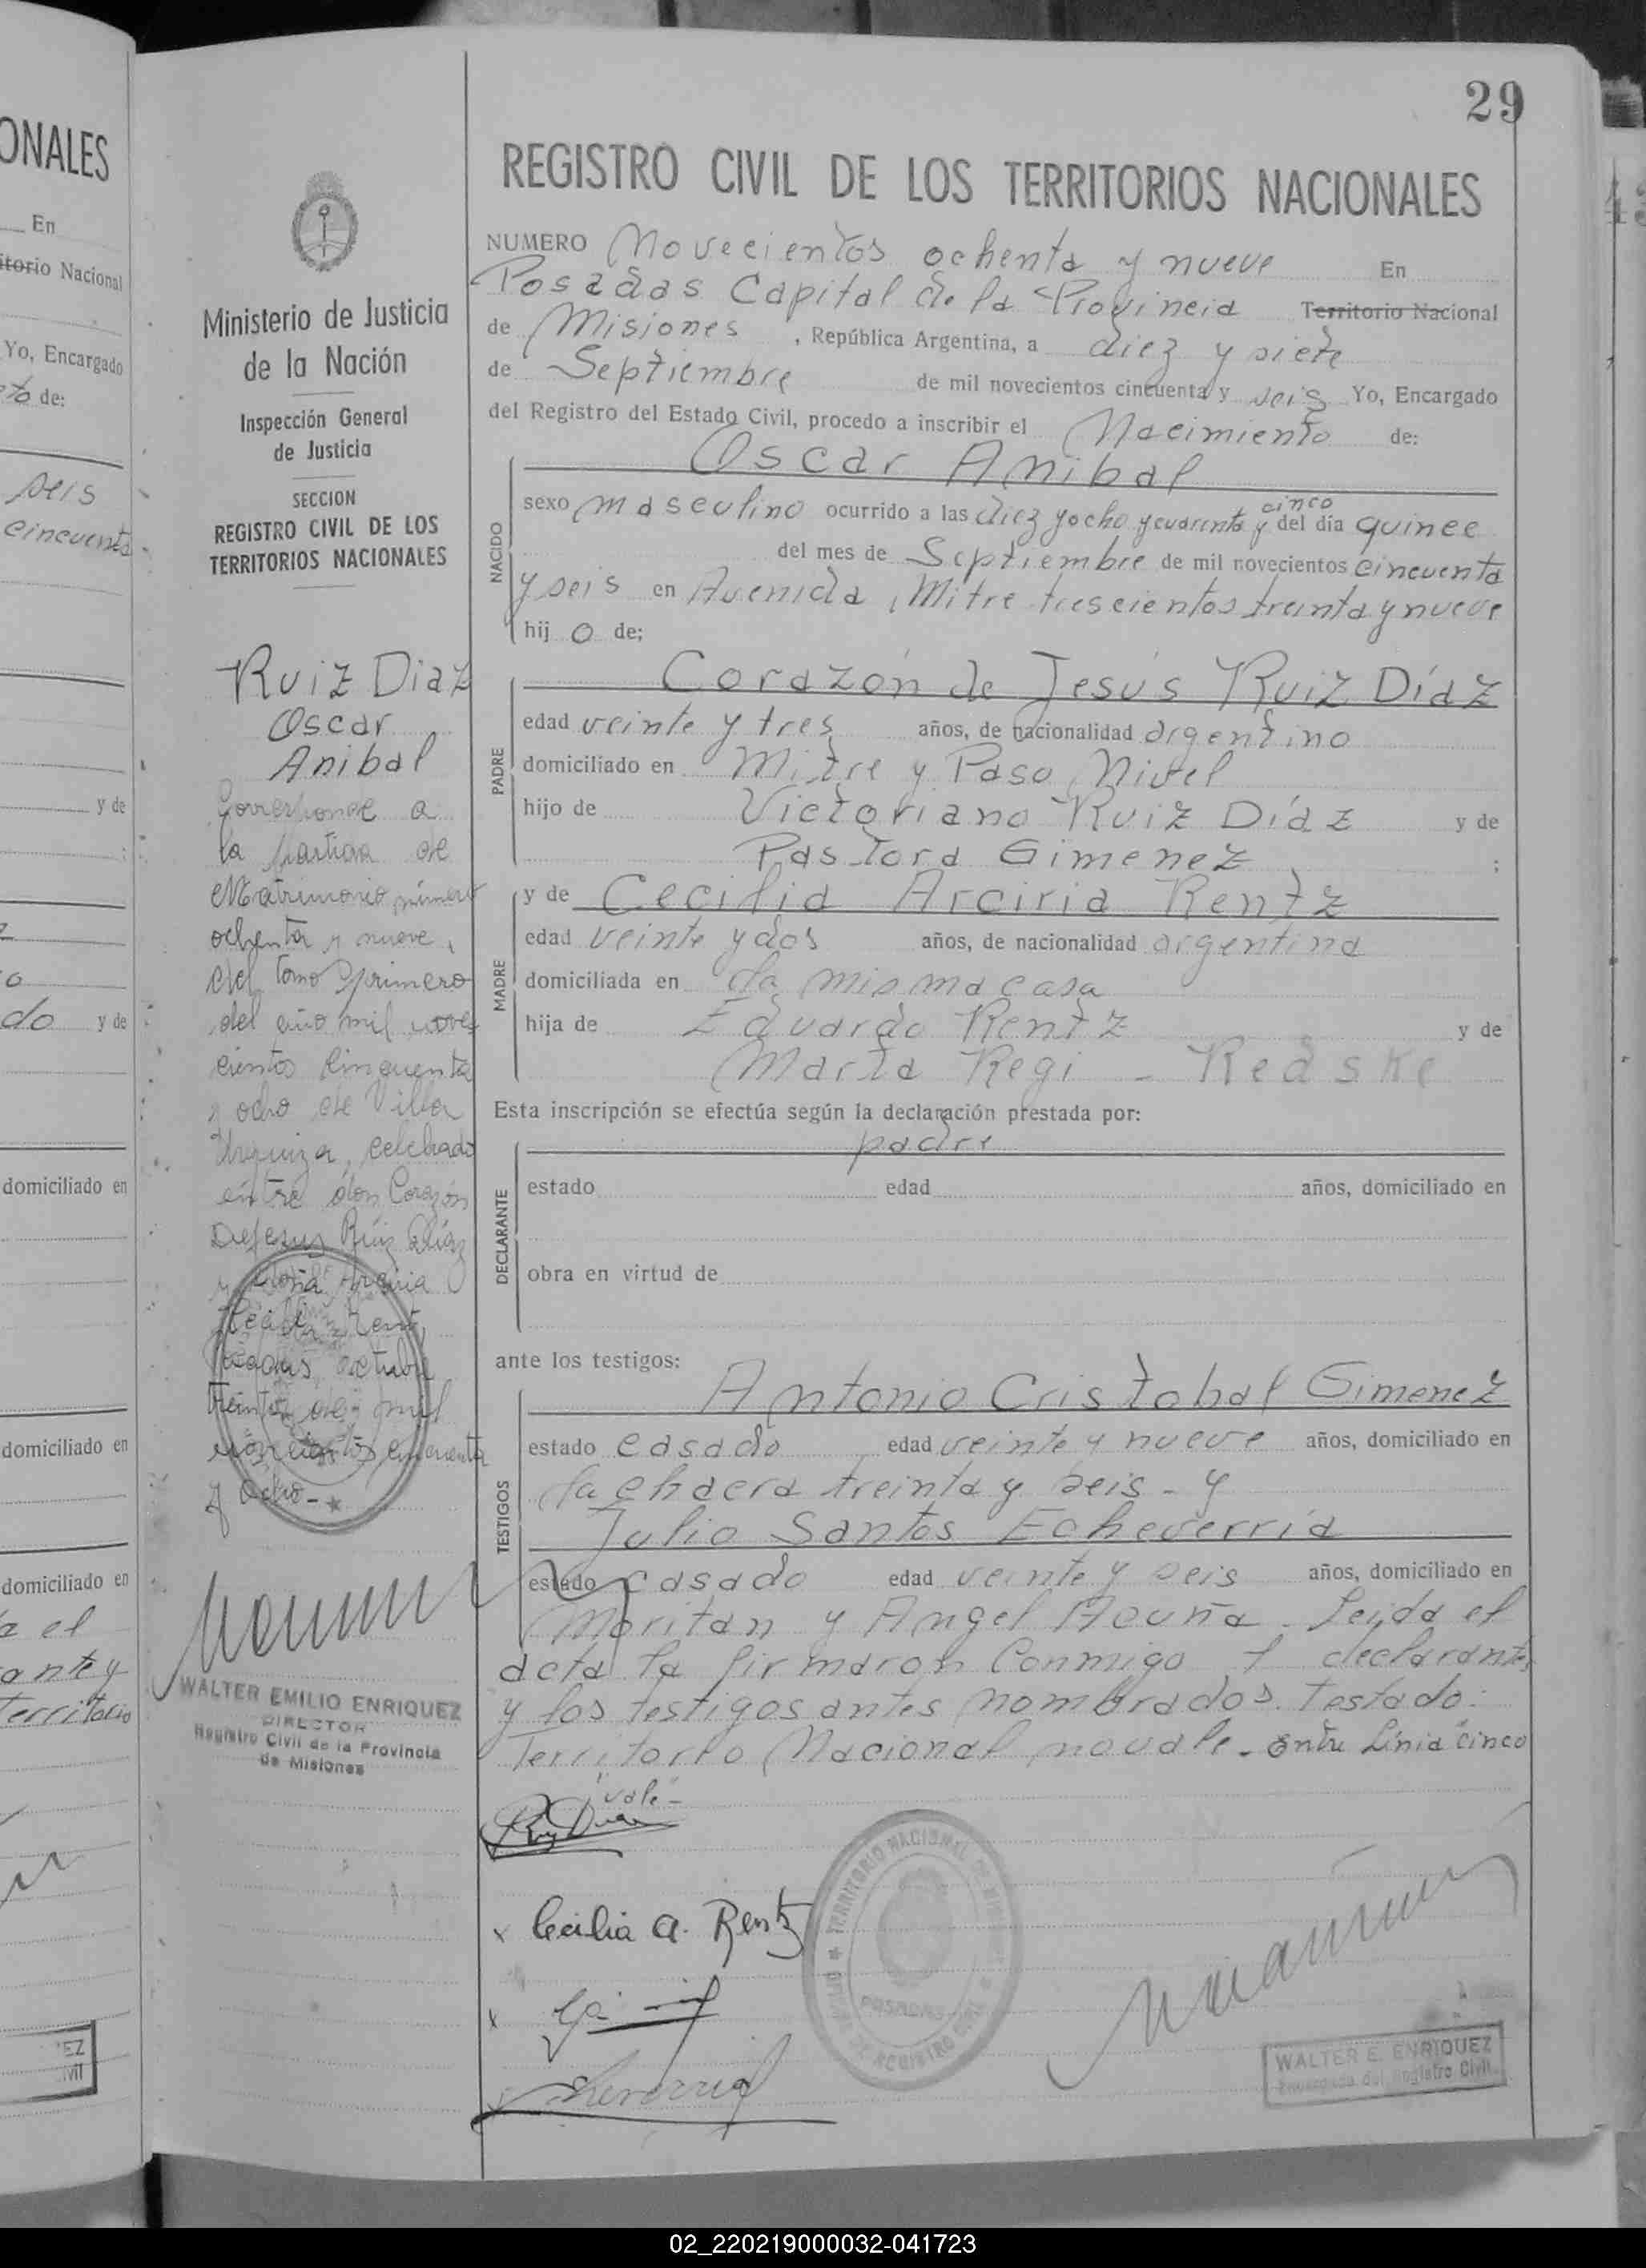 ONALES
En
itorio Nacional
Yo, Encargado
de:
seis
cincuenta
y de
do y de
domiciliado en
domiciliado en
domiciliado en
a el
ante y
Territorio
EZ
ivil
29
Ministerio de Justicia
de la Nación
Inspección General
de Justicia
SECCION
REGISTRO CIVIL DE LOS
TERRITORIOS NACIONALES
Ruiz Diaz
Oscar
Anibal
Corresponde a
la partida de
Matrimonio número
ochenta y nueve,
del tomo primero
del año mil nove
cientos cincuenta
y ocho de Villa
Urquiza, celebrado
entre don Corazón
DeJesus Ruiz Díaz
y doña Arciria
Cecilia Rentz
Posadas, octubre
treinta de mil
novecientos cincuenta
y ocho-
WALTER EMILIO ENRIQUEZ
DIRECTOR
Registro Civil de la Provincia
de Misiones
REGISTRO CIVIL DE LOS TERRITORIOS NACIONALES
NUMERO Novecientos ochenta y nueve En
Posadas Capital de la Provincia Territorio Nacional
de Misiones , República Argentina, a diez y siete
de Septiembre de mil novecientos cincuenta y seis Yo, Encargado
del Registro del Estado Civil, procedo a inscribir el Nacimiento de:
Oscar Anibal
NACIDO
cinco
sexo masculino ocurrido a las diez y ocho y cuarenta y del día quince
del mes de Septiembre de mil novecientos cincuenta
y seis en Avenida Mitre trescientos treinta y nueve
hij o de;
PADRE
Corazón de Jesús Ruiz Díaz
edad veinte y tres años, de nacionalidad argentino
domiciliado en Mitre y Paso Nivel
hijo de Victoriano Ruiz Díaz y de
Pastora Gimenez ;
MADRE
y de Cecilia Arciria Rentz
edad veinte y dos años, de nacionalidad argentina
domiciliada en la misma casa
hija de Eduardo Rentz y de
Marta Regi - Redske
Esta inscripción se efectúa según la declaración prestada por:
padre
DECLARANTE
estado edad años, domiciliado en
obra en virtud de
ante los testigos:
TESTIGOS
Antonio Cristobal Gimenez
estado casado edad veinte y nueve años, domiciliado en
la chacra treinta y seis - y
Julio Santos Echeverria
estado casado edad veinte y seis años, domiciliado en
Moritan y Angel Acuña. Leida el
acta la firmaron conmigo el declarante,
y los testigos antes nombrados. Testado:
Territorio Nacional no vale - Entre Línia "cinco
"vale"-
Ruiz Diaz
x Cecilia A. Rentz
x
Echeverria
TERRITORIO NACIONAL DE MISIONES
POSADAS
REGISTRO CIVIL
WALTER E. ENRIQUEZ
Encargado del Registro Civil
02_220219000032-041723